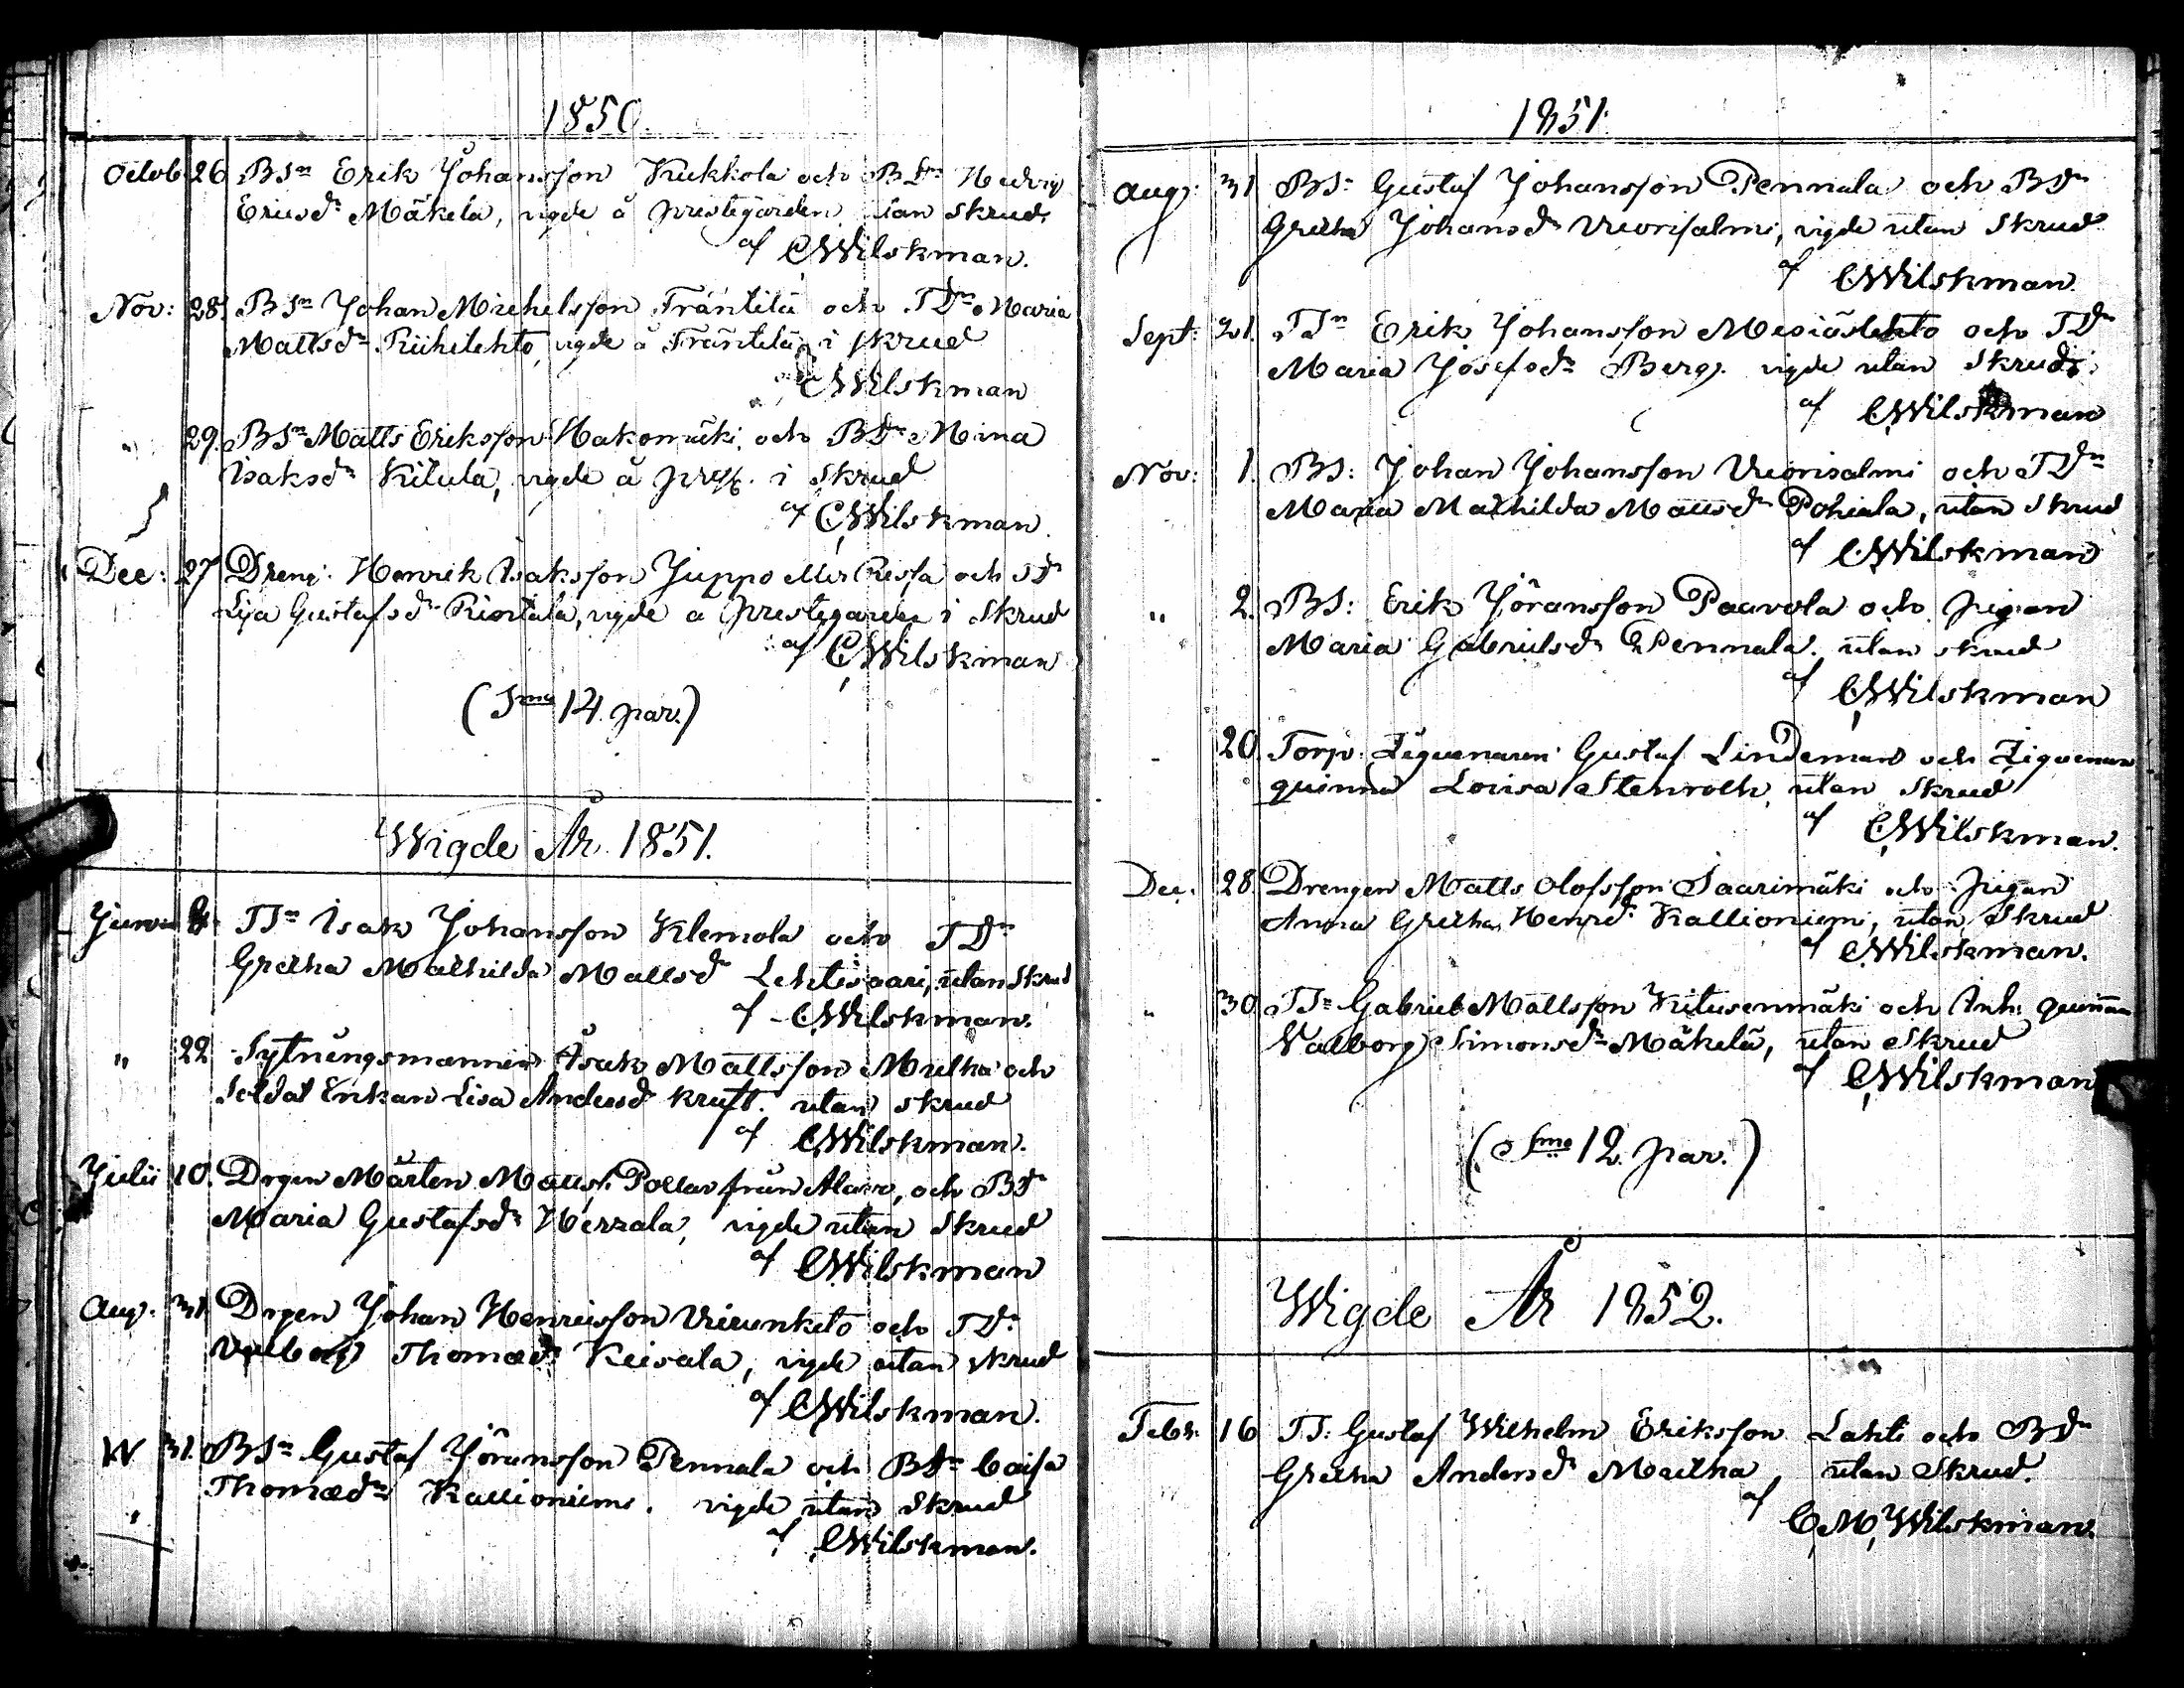 1850.
Octob. 26 BSn Erik Johansson Kukkola och BDr Hedvig
Ericsdr Mäkelä, vigde å prestegården utan Skrud
af CWilskman.
Nov: 28 BSn Johan Michelsson Träntilä och TDr Maria
Mattsdr Riihilehto, vigde å Träntilä i skrud
CWilskman
" 29. BSn Matts Eriksson Hakomäki och BDr Mina
Isaksdr Kitula, vigde å prestg. i Skrud
af CWilskman.
Dec: 27 Dreng. Henrik Isaksson Juppo eller Rissa och SDr
Lisa Gustafsdr Rintala, vigde å prestegården i Skrud
af CWilskman
(Sma 14 par.)
Wigde År 1851.
Junii TSn Isak Johansson Klemola och TDr
Gretha Mathilda Mattsdr Lehtisaari, utan Skrud
af CWilskman.
" 22 Sytningsmannen Isak Mattsson Mutka och
Soldat Enkan Lisa Andersdr Kruft. utan skrud
af CWilskman.
Julii 10. Drgen Mårten Mattss. Pollar från Alavo, och BDr
Maria Gustafsdr Herrala, vigde utan Skrud
af CWilskman
Aug: 31 Drgen Johan Henricsson Virunketo och TDr
Valborg Thomædr Keisala, vigde utan skrud
af CWilskman.
31. BSn Gustaf Jöransson Pennala och BDr Caisa
" Thomædr Kallioniemi. vigde utan Skrud
af CWilskman.
1851.
Aug: 31 BS: Gustaf Johansson Pennala och BDr
Gretha Johansdr Vuorisalmi, vigde utan Skrud
af CWilskman.
Sept: 21. TSn Erik Johansson Mesiäslehto och TDr
Maria Josefsdr Berg. vigde utan Skrud.
af CWilskman
Nov: 1. BS: Johan Johansson Vuorisalmi och TDr
Maria Mathilda Mattsdr Pohiala, utan Skrud
af CWilskman
" 2. BS: Erik Jöransson Paavola och pigan
Maria Gabrielsdr Pennala. utan skrud
af CWilskman
- 20. Torp. Ziguenaren Gustaf Lindeman och Ziguenar
quinnan Lovisa Stenroth, utan Skrud
af CWilskman.
Dec. 28. Drengen Matts Olofsson Saarimäki och Pigan
Anna Gretha Henrdr Kallioniemi, utan Skrud
af CWilskman.
" 30. TSn Gabriel Mattsson Kitusenmäki och Inh. quinnan
Valborg Simonsdr Mäkelä, utan Skrud
af CWilskman
(Sma 12. par.)
Wigde År 1852.
Febr. 16 TS: Gustaf Wilhelm Eriksson Lahti och BDr
Gretha Andersdr Mutka, utan Skrud.
af C, M, Wilskman.